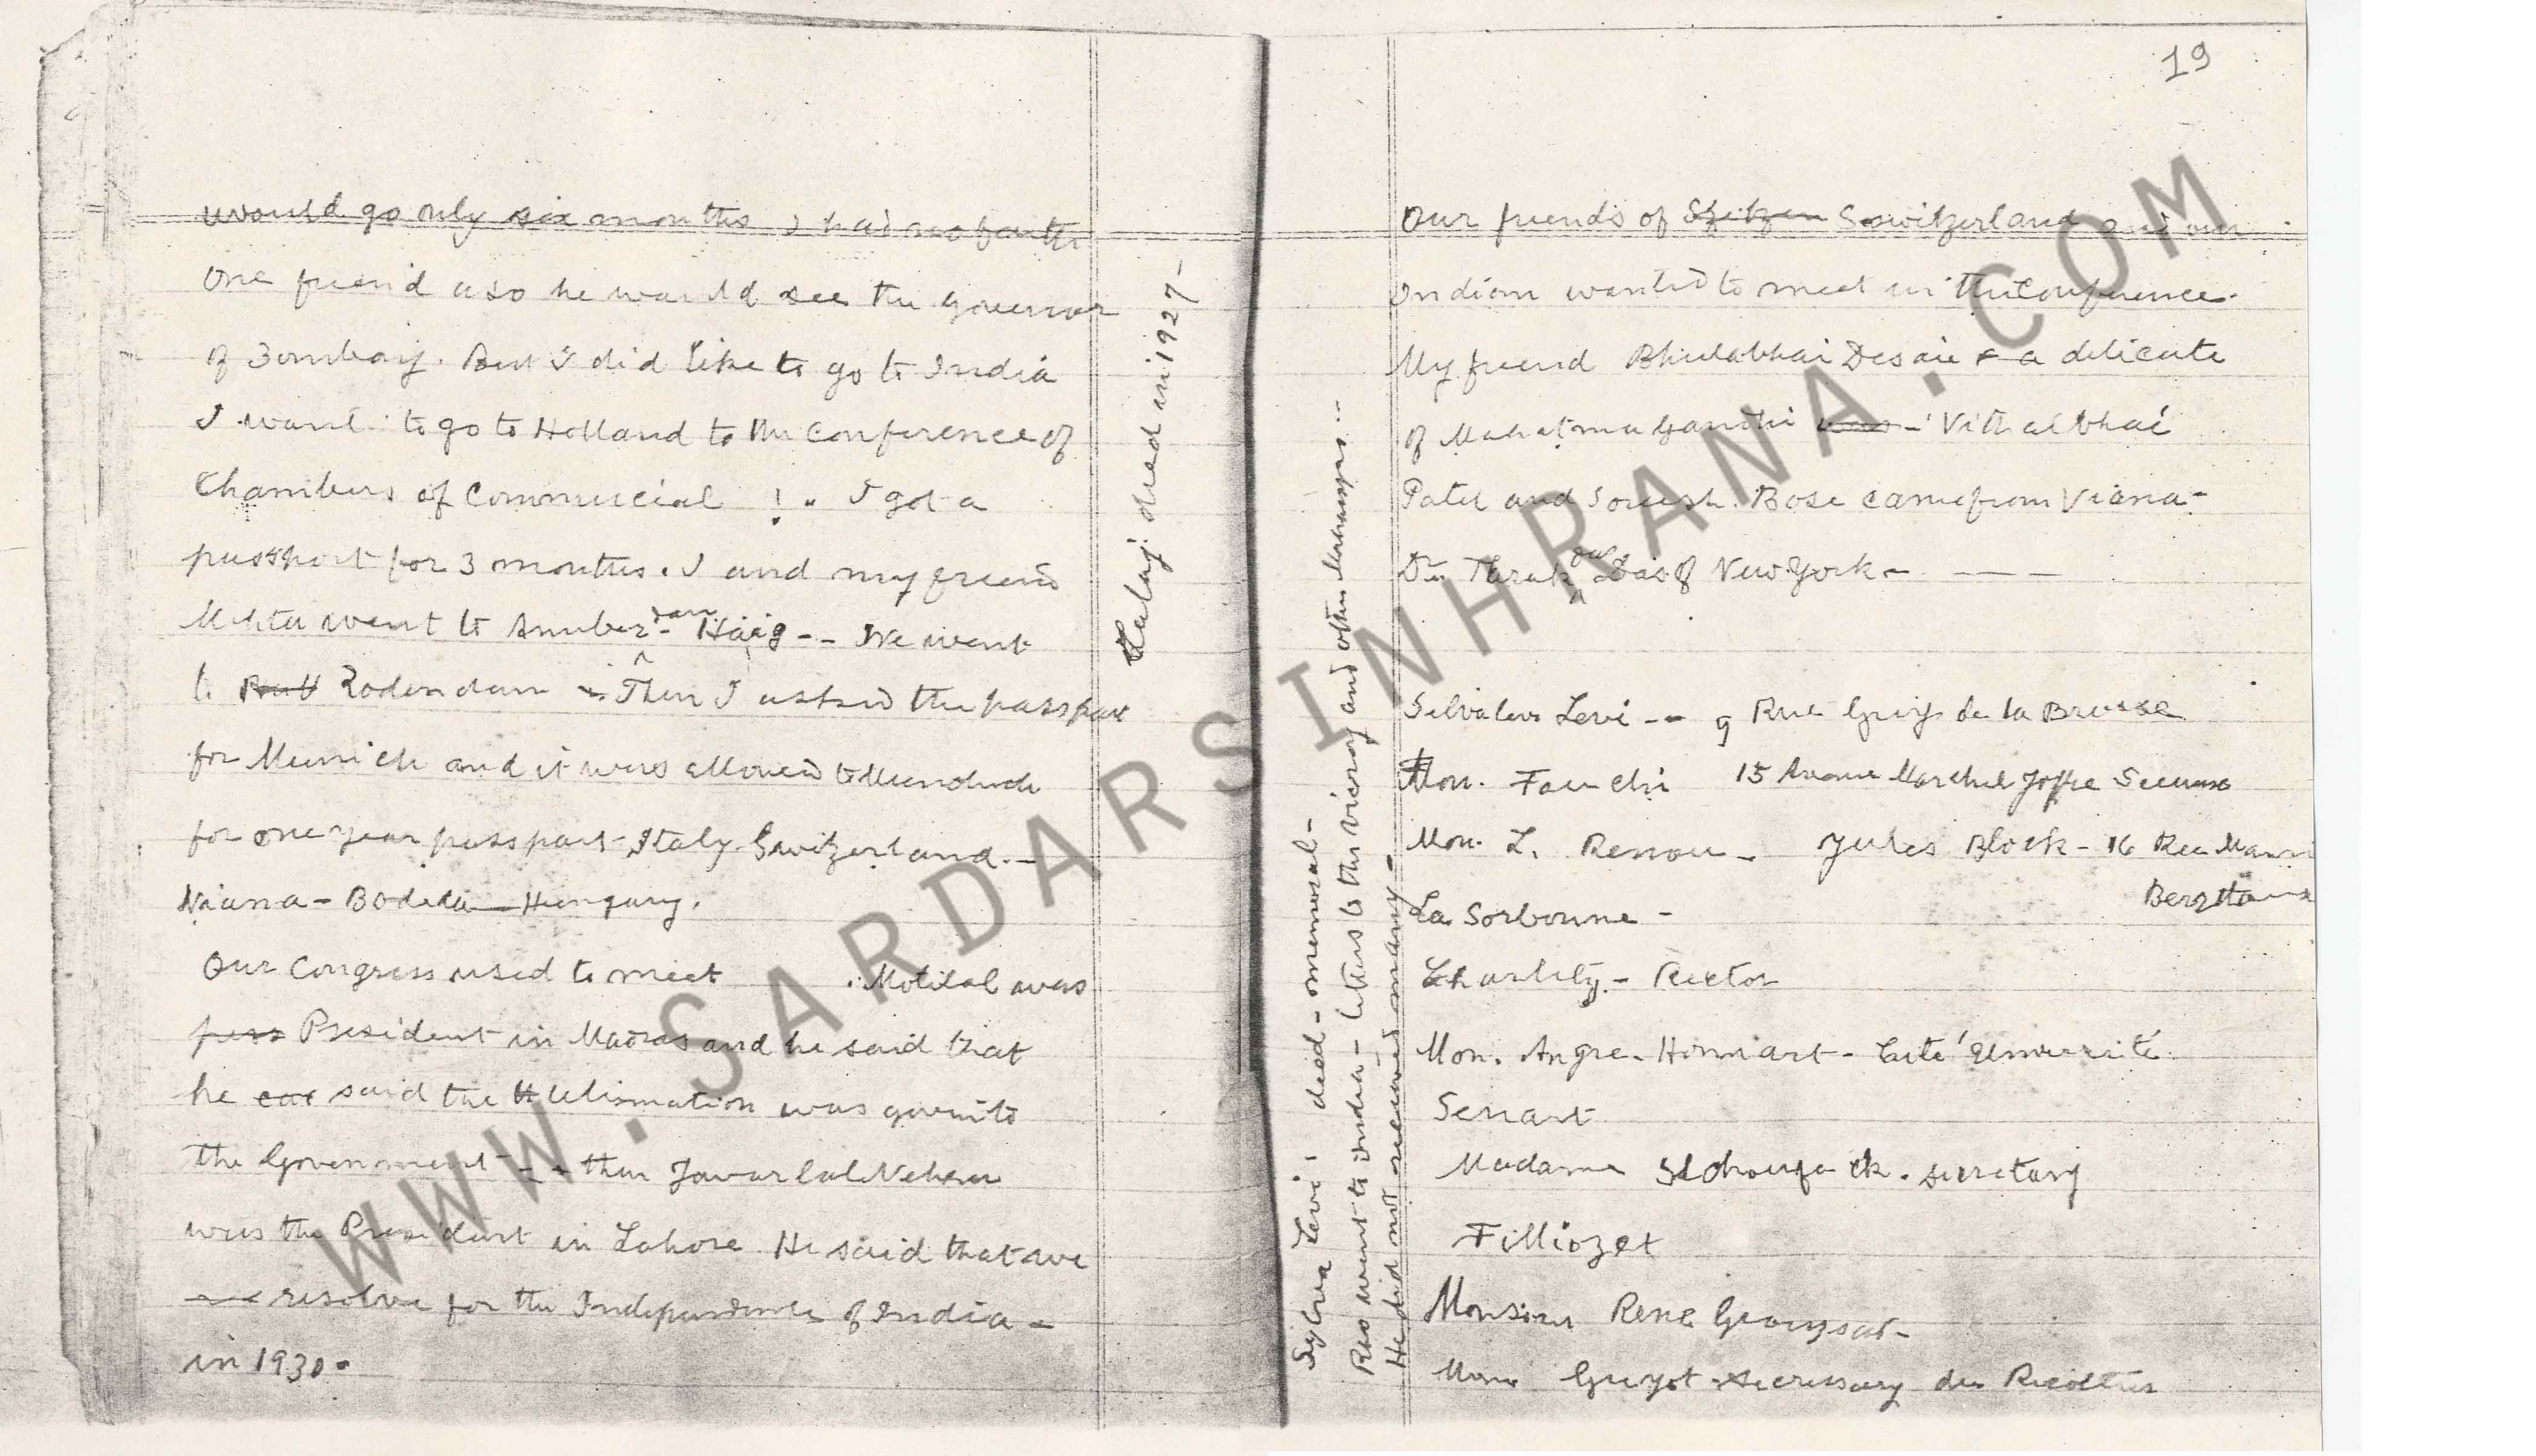 would go only six months I had
One friend also he would see the governor
of Bombay. But I did like to go to India
I want to go to Holland to the Conference of
Chambers of Commercial ! .. I got a
passport for 3 months. I and my friend
Mehta went to Amberdam - Haig -- We went
to Roderdam - Then I asked the passport
for Munich and it was allowed to
for one year passport Italy Swizerland. -
Viana - - Hungary.
Our Congress used to meet . Motilal was
pers President in Madras and he said that
he said the Ultismation was given to
the Government - - then Jawarlal Nehru
was the President in Lahore He said that we
resolve for the Independence of India -
in 1930.
Lalaji died in 1927 -
19
Our friends of Switzerland and our
Indian wanted to meet in the Conference.
My friend Bhulabhai Desaie & a delicate
of Mahatma Gandhi was - Vithalbhai
Patel and Bose came from Viana -
Dr. Tarak Das of New York - ——
Sylva Levi : died - memorial -
Rao went to India - letters to the viceroy and other Maharajas ..
He did not received many -
Silvalevs Levi -- 9 Rue Guy de la Brosse
Mon. Fouchi 15 Avenue Marchel Joffre
Mon. L. Renou - Jules Block - 16 Rue
La Sorbonne -
Charlety - Rector
Mon. Angre - Honnart - Cité Université
Senart
Madame secretary
Filliozet
Monsieur Rene Groussat -
Mons Guyot